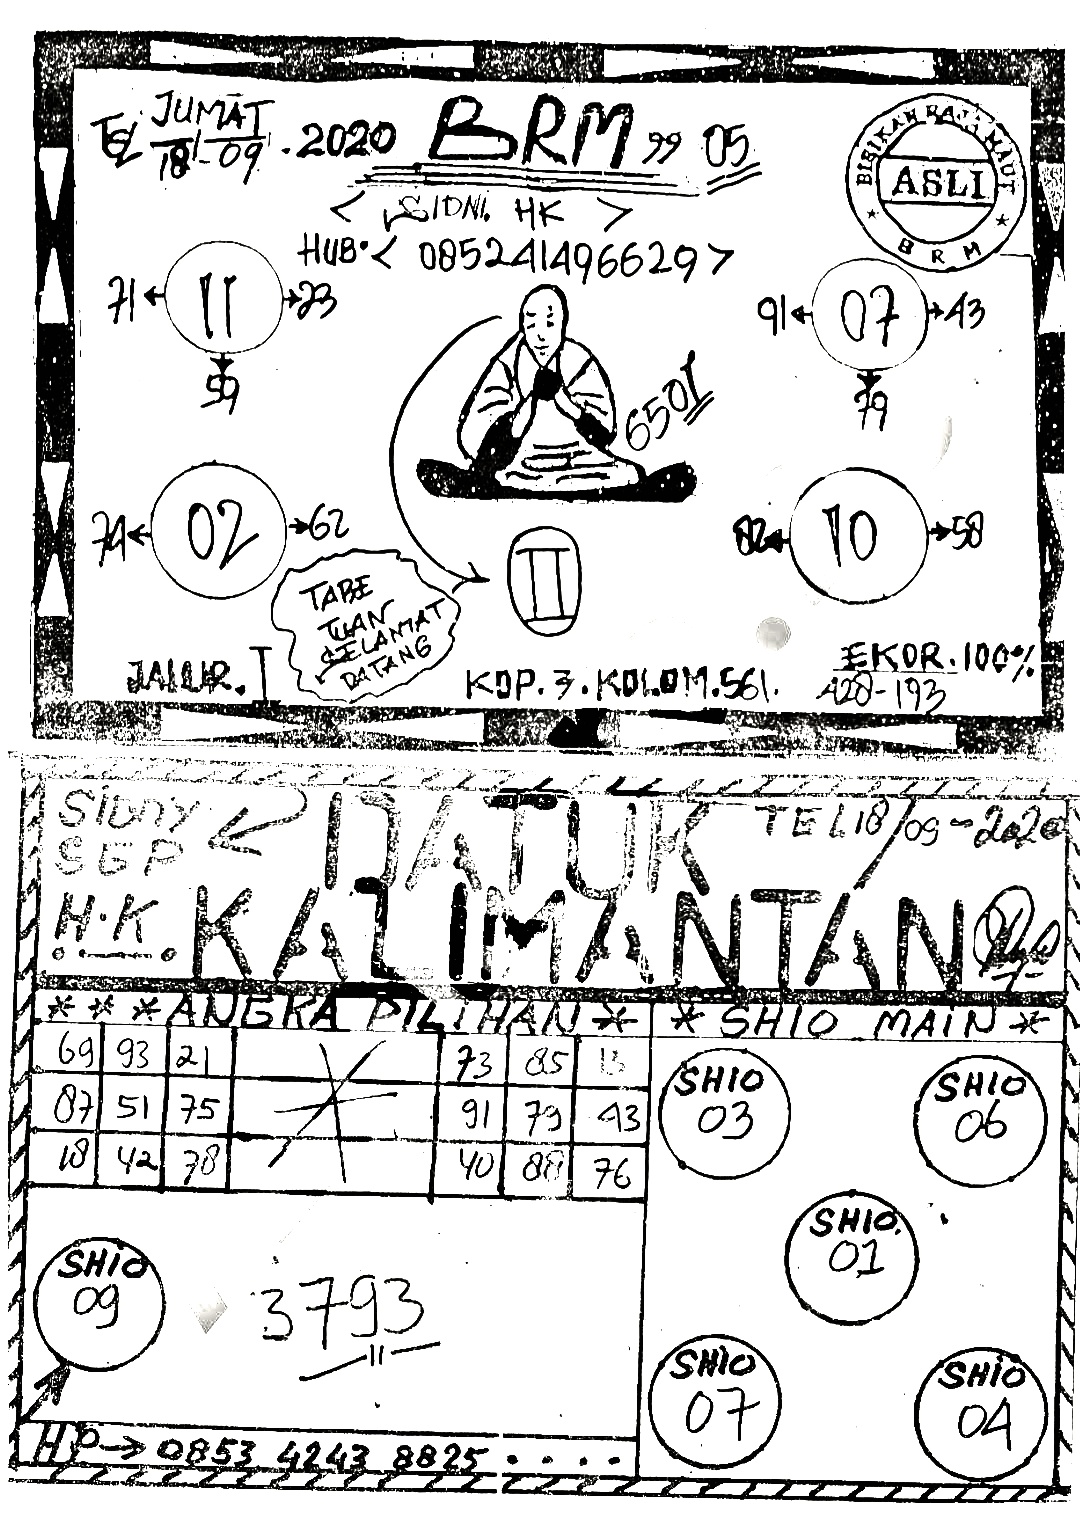 JUMAT
TGL 18-09.2020 BRM 99 05
BISIKAN RAJA MAUT
ASLI
BRM
< SIDNI. HK >
HUB. < 085241496629 >
71 11 23
59
91 07 43
79
6501
74 02 62
82 10 58
II
TABE
TUAN
SELAMAT
DATANG
JALUR. I
KOP. 3. KOLOM. 561.
EKOR. 100%
428-193
SIDNY
SGP
H.K
DATUK
KALIMANTAN
TEL 18/09-2020
* * * ANGKA PILIHAN *
* SHIO MAIN *
69 93 21 73 85
87 51 75 91 79 43
18 42 78 40 88 76
SHIO
03
SHIO
06
SHIO.
01
SHIO
07
SHIO
04
SHIO
09
3793
11
HP → 0853 4243 8825 . . . .